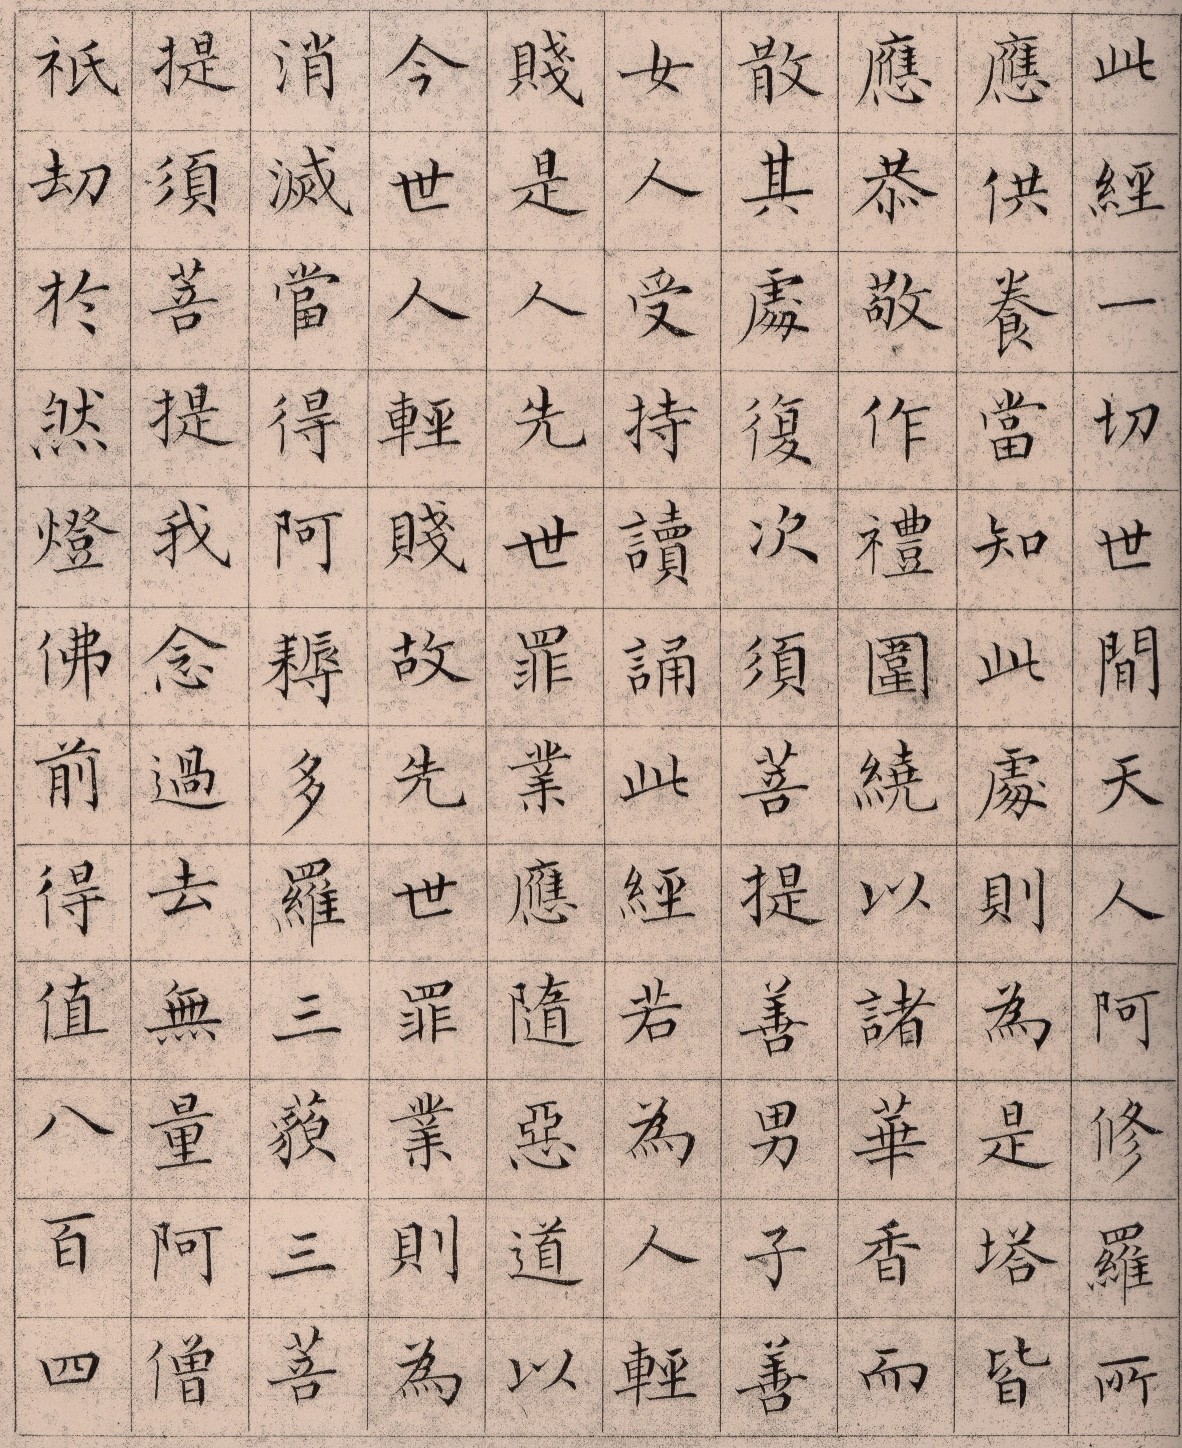 此經一切世間天人阿修羅所
應供養當知此處則為是塔皆
應恭敬作禮圍繞以諸華香而
散其處復次須菩提善男子善
女人受持讀誦此經若為人輕
賤是人先世罪業應隨惡道以
今世人輕賤故先世罪業則為
消滅當得阿耨多羅三藐三菩
提須菩提我念過去無量阿僧
祇劫於然燈佛前得值八百四